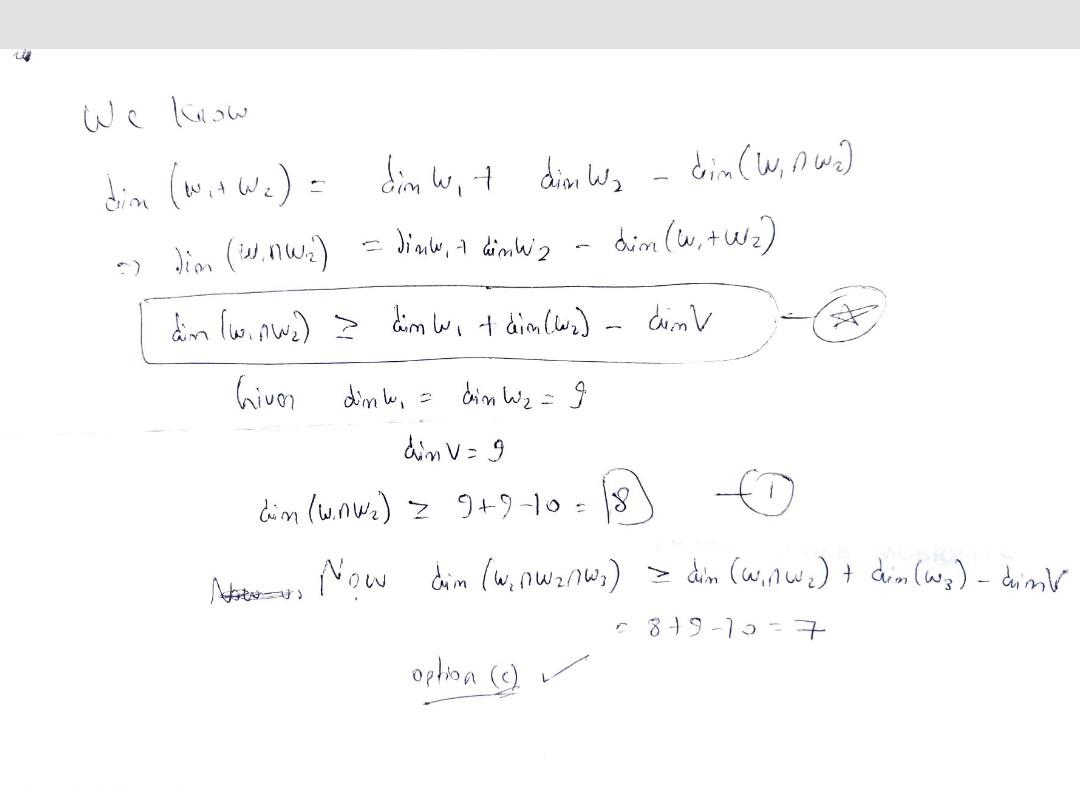 We Know
dim (W₁+W₂) = dim W₁ + dim W₂ - dim(W₁∩W₂)
=> dim (W₁∩W₂) = dimW₁ + dimW₂ - dim(W₁+W₂)
dim (W₁∩W₂) ≥ dim W₁ + dim(W₂) - dimV - ☆
Given dimW₁ = dim W₂ = 9
dim V = 9
dim (W₁∩W₂) ≥ 9+9-10 = 8 - 1
Now dim (W₂∩W₂∩W₃) ≥ dim (W₁∩W₂) + dim(W₃) - dimV
= 8+9-10 = 7
option (c) ✓